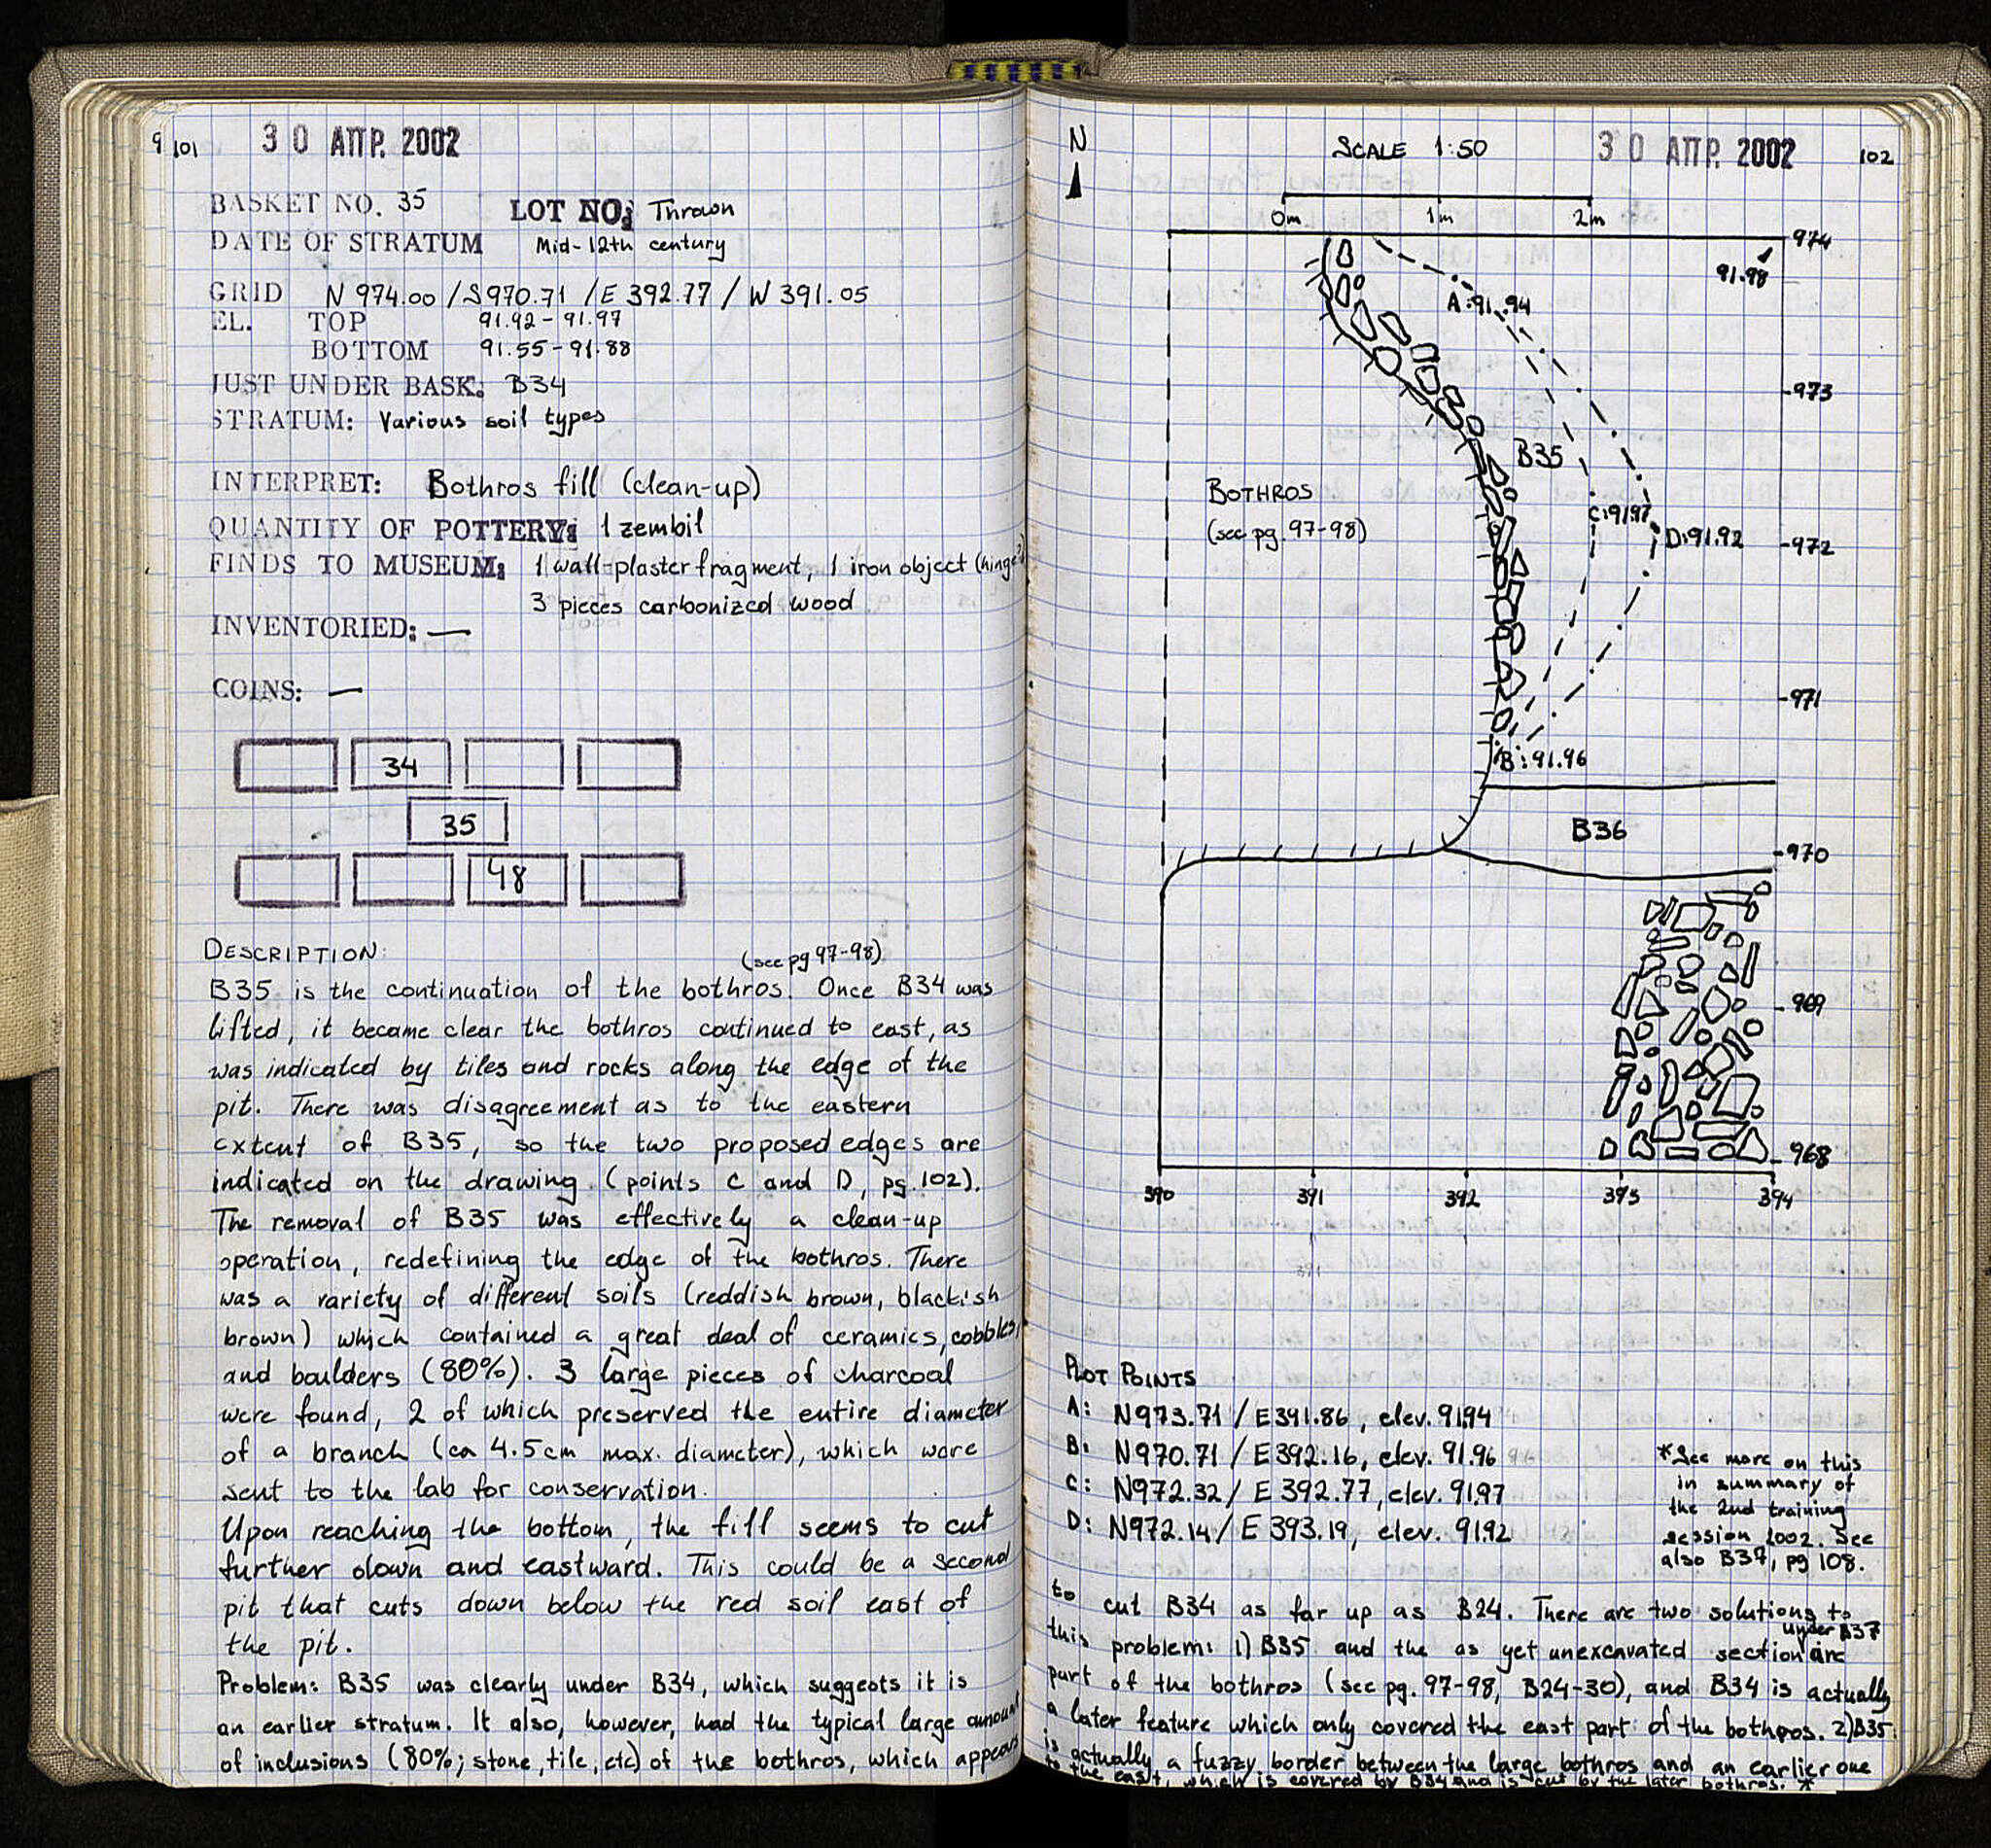 9 101
30 ΑΠΡ. 2002
BASKET NO. 35 LOT NO: Thrown
DATE OF STRATUM Mid-12th century
GRID N 974.00 / S 970.71 / E 392.77 / W 391.05
EL. TOP 91.92 - 91.97
BOTTOM 91.55 - 91.88
JUST UNDER BASK: B34
STRATUM: Various soil types
INTERPRET: Bothros fill (clean-up)
QUANTITY OF POTTERY: 1 zembil
FINDS TO MUSEUM: 1 wall-plaster fragment, 1 iron object (hinge?)
3 pieces carbonized wood
INVENTORIED: —
COINS: —
34
35
48
DESCRIPTION: (see pg 97-98)
B35 is the continuation of the bothros. Once B34 was
lifted, it became clear the bothros continued to east, as
was indicated by tiles and rocks along the edge of the
pit. There was disagreement as to the eastern
extent of B35, so the two proposed edges are
indicated on the drawing (points C and D, pg 102).
The removal of B35 was effectively a clean-up
operation, redefining the edge of the bothros. There
was a variety of different soils (reddish brown, blackish
brown) which contained a great deal of ceramics, cobbles,
and boulders (80%). 3 large pieces of charcoal
were found, 2 of which preserved the entire diameter
of a branch (ca 4.5cm max. diameter), which were
sent to the lab for conservation.
Upon reaching the bottom, the fill seems to cut
further down and eastward. This could be a second
pit that cuts down below the red soil east of
the pit.
Problem: B35 was clearly under B34, which suggests it is
an earlier stratum. It also, however, had the typical large amount
of inclusions (80%; stone, tile, etc) of the bothros, which appears
N
SCALE 1:50
30 ΑΠΡ. 2002
102
0m 1m 2m
974
91.98
A:91.94
973
B35
BOTHROS
(see pg. 97-98)
C:91.97
D:91.92
972
971
B:91.96
B36
970
969
968
390 391 392 393 394
391
PLOT POINTS
A: N973.71 / E391.86, elev. 91.94
B: N970.71 / E392.16, elev. 91.96
C: N972.32 / E 392.77, elev. 91.97
D: N972.14 / E 393.19, elev. 91.92
*See more on this
in summary of
the 2nd training
session 2002. See
also B37, pg 108.
to cut B34 as far up as B24. There are two solutions to
under B37
this problem: 1) B35 and the as yet unexcavated section are
part of the bothros (see pg. 97-98, B24-30), and B34 is actually
a later feature which only covered the east part of the bothros. 2) B35
is actually a fuzzy border between the large bothros and an earlier one
to the east, which is covered by B34 and is cut by the later bothros. *